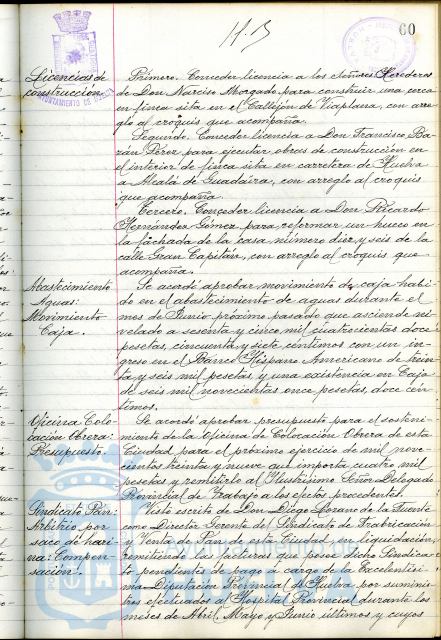 60
Licencias de
construcción
AYUNTAMIENTO DE
Primero. Conceder licencia a los Señores Herederos
de Don Narciso Morgado para construir una cerca
en finca sita en el Callejón de Viaplana, con arre-
glo al croquis que acompaña.
Segundo. Conceder licencia a Don Francisco Ba-
zán Pérez para ejecutar obras de construcción en
el interior de finca sita en carretera de Huelva
a Alcalá de Guadaira, con arreglo al croquis
que acompaña.
Tercero. Conceder licencia a Don Ricardo
Hernández Gómez para reformar un hueco en
la fachada de la casa número diez y seis de la
calle Gran Capitán, con arreglo al croquis que
acompaña.
Abastecimiento
Aguas:
Movimiento
Caja.
Se acordó aprobar movimiento de caja habi-
do en el abastecimiento de aguas durante el
mes de Junio próximo pasado que asciende ni-
velado a sesenta y cinco mil cuatrocientas doce
pesetas, cincuenta y siete céntimos con un in-
greso en el Banco Hispano Americano de
y seis mil pesetas y una existencia en Caja
de seis mil novecientas once pesetas, doce cén-
timos.
Oficina Colo-
cación Obrera:
Presupuesto.
Se acordó aprobar presupuesto para el sosteni-
miento de la Oficina de Colocación Obrera de esta
Ciudad, para el próximo ejercicio de mil nove-
cientos treinta y nueve que importa cuatro mil
pesetas y remitirlo al Ilustrísimo Señor Delegado
Provincial de Trabajo a los efectos procedentes.
Sindicato Pan:
Arbitrio por
saco de hari-
na: Compen-
sación.
Visto escrito de Don Diego Lozano de la Fuente
como Director Gerente del Sindicato de Fabricación
y Venta de Pan de esta Ciudad, en liquidación,
remitiendo las facturas que posee dicho Sindica-
to pendientes de pago a cargo de la Excelentísi-
ma Diputación Provincial de Huelva por suminis-
tros efectuados al Hospital Provincial durante los
meses de Abril, Mayo y Junio últimos y cuyos